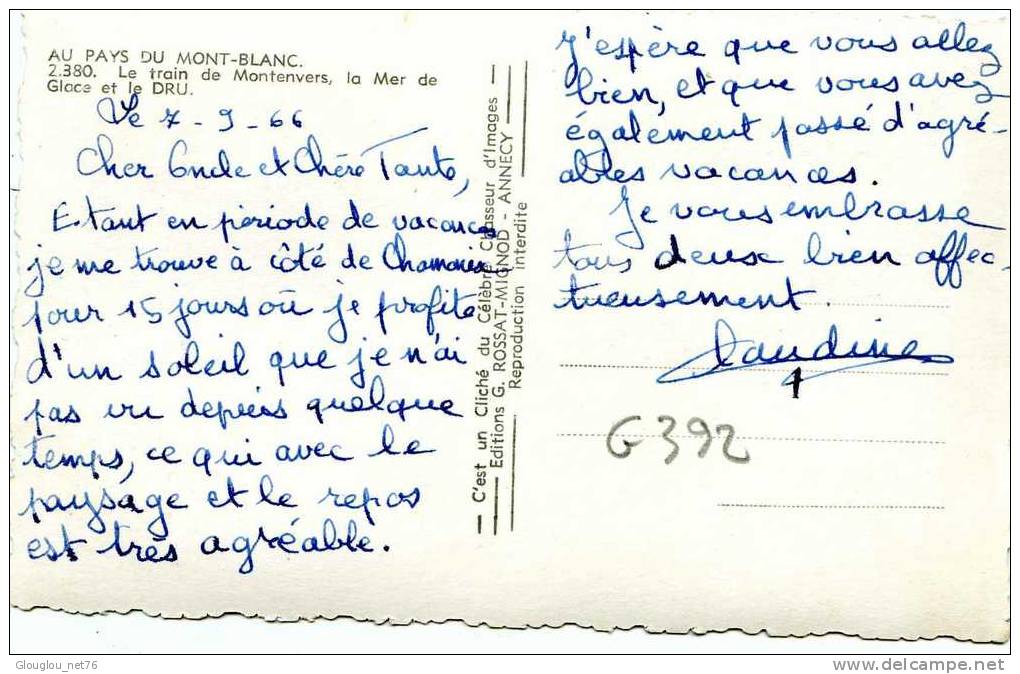 AU PAYS DU MONT-BLANC.
2.380. Le train de Montenvers, la Mer de
Glace et le DRU.
Le 7-9-66
Cher Oncle et Chère Tante,
Etant en période de vacances
je me trouve à côté de Chamonix
pour 15 jours où je profite
d'un soleil que je n'ai
pas vu depuis quelque
temps, ce qui avec le
paysage et le repos
est très agréable.
C'est un Cliché du Célèbre Chasseur d'Images
Editions G. ROSSAT-MIGNOD - ANNECY
Reproduction interdite
J'espère que vous allez
bien, et que vous avez
également passé d'agré-
ables vacances.
Je vous embrasse
tous deux bien affec-
tueusement.
Claudine
G392
Glouglou_net76
www.delcampe.net